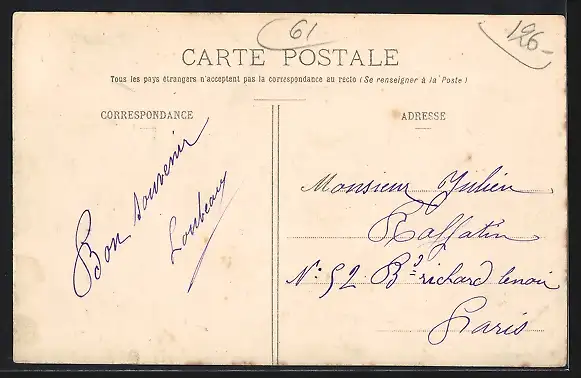 61
126-
CARTE POSTALE
Tous les pays étrangers n'acceptent pas la correspondance au recto (Se renseigner à la Poste)
CORRESPONDANCE
ADRESSE
Bon souvenir
Loubeau
Monsieur Julien
Raffatin
N° 52 Bd richard lenoir
Paris